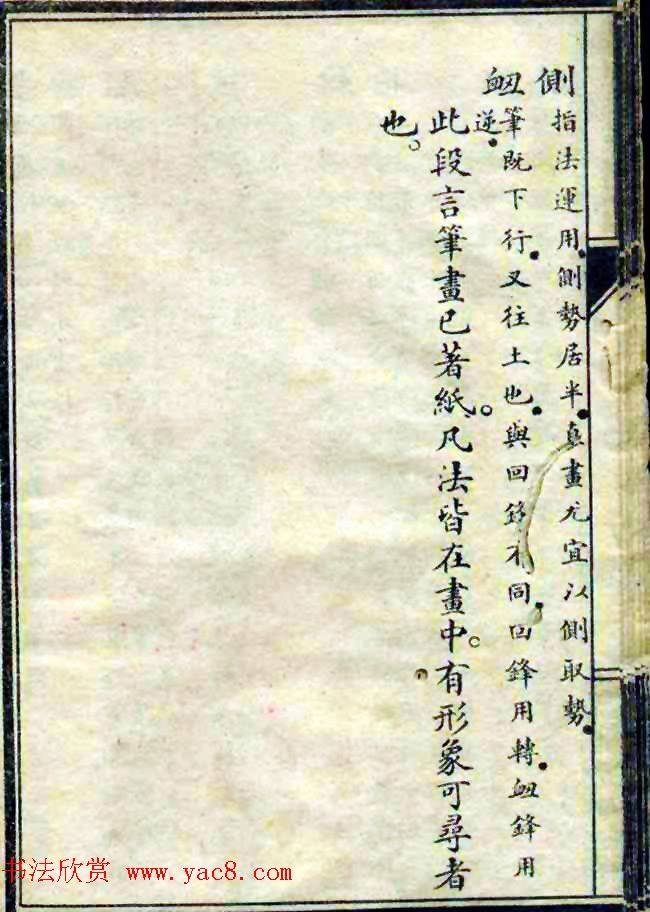 側 指法運用。側勢居半。直畫尤宜以側取勢。
衄 筆既下行。又往上也。與回鋒不同。回鋒用轉。衄鋒用
逆。
此段言筆畫已著紙。凡法皆在畫中。有形象可尋者
也。
书法欣赏 www.yac8.com